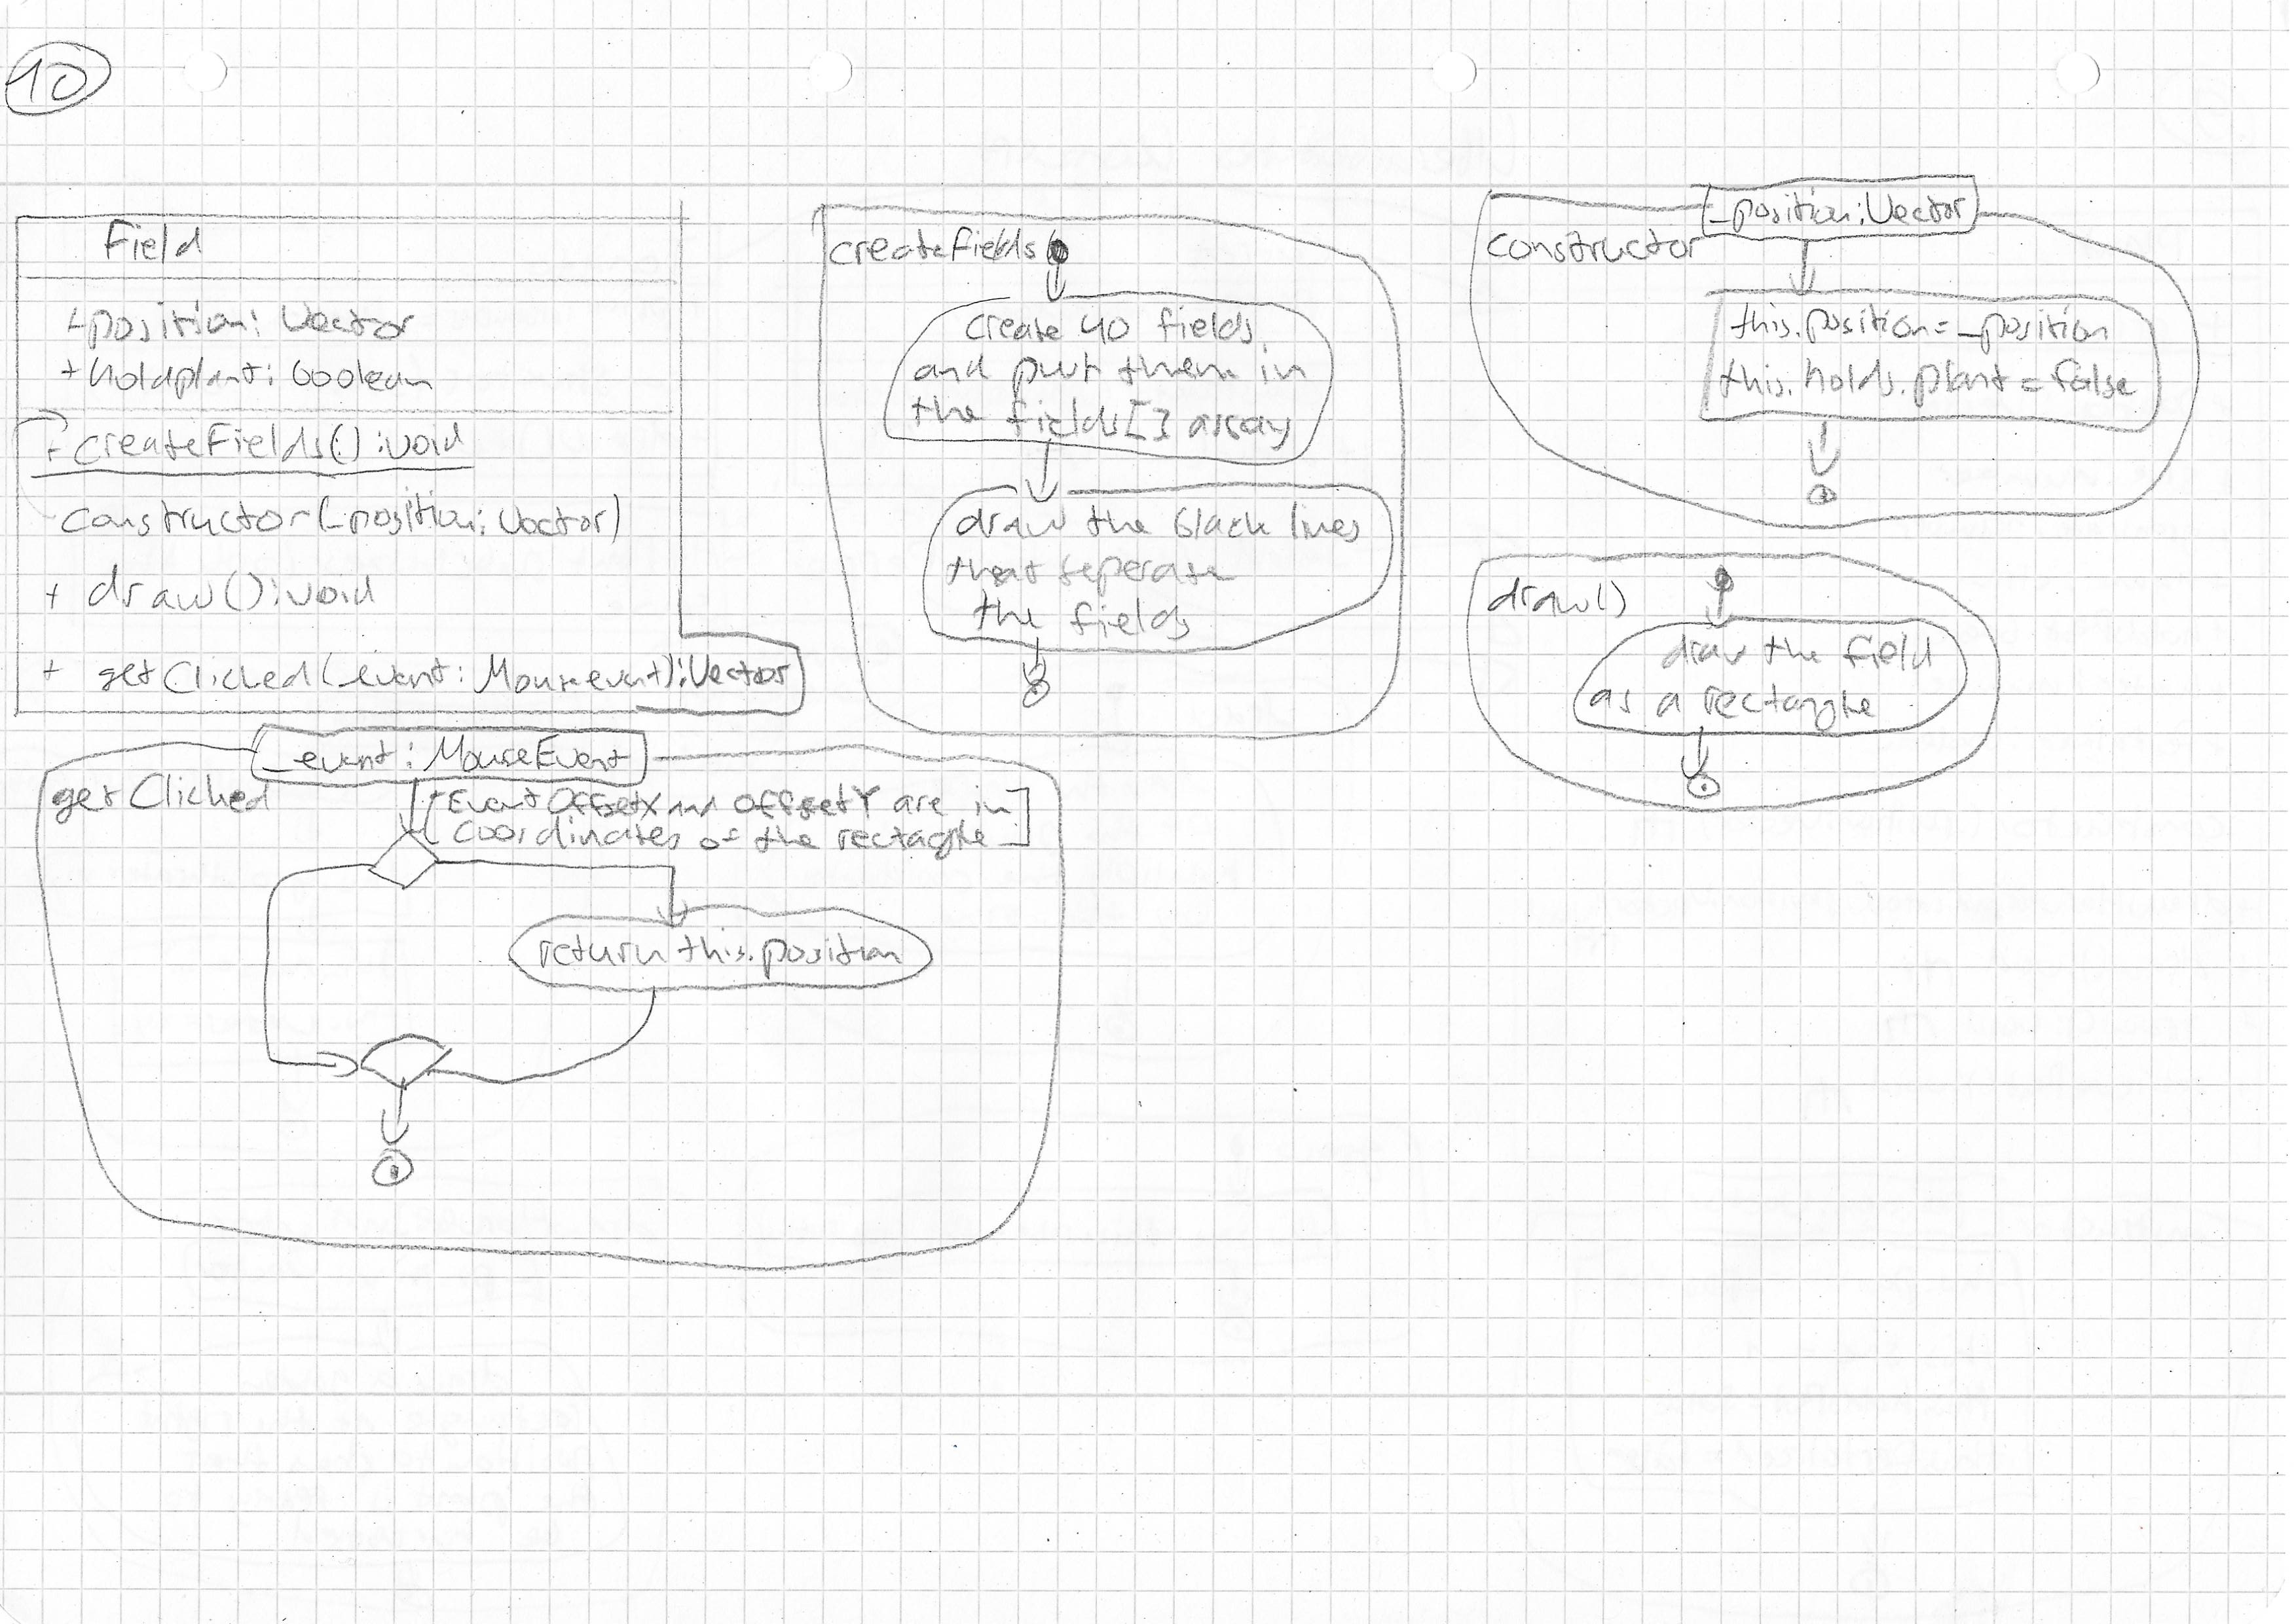 10
Field
+position: Vector
+holdplant: boolean
+createFields(): void
constructor(_position: Vector)
+ draw(): void
+ getClicked(_event: Mouseevent): Vector
createFields
create 40 fields
and put them in
the fields[] array
draw the black lines
that seperate
the fields
_position: Vector
constructor
this.position = _position
this.holds.plant = false
draw()
draw the field
as a rectangle
_event: MouseEvent
getClicked
[Event OffsetX and OffsetY are in
coordinates of the rectagle]
return this.position